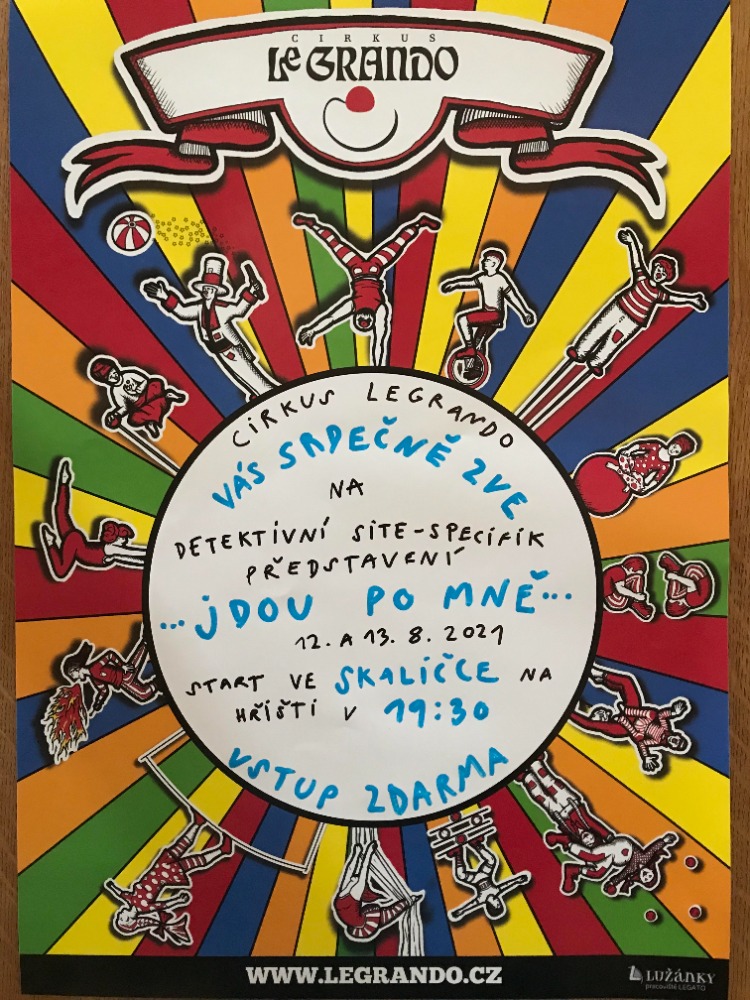 CIRKUS
Le GRANDO
CIRKUS LEGRANDO
VÁS SRDEČNĚ ZVE
NA
DETEKTIVNÍ SITE-SPECIFIK
PŘEDSTAVENÍ
...JDOU PO MNĚ...
12. A 13. 8. 2021
START VE SKALIČCE NA
HŘIŠTI V 19:30
VSTUP ZDARMA
WWW.LEGRANDO.CZ
LUŽÁNKY
pracoviště LEGATO